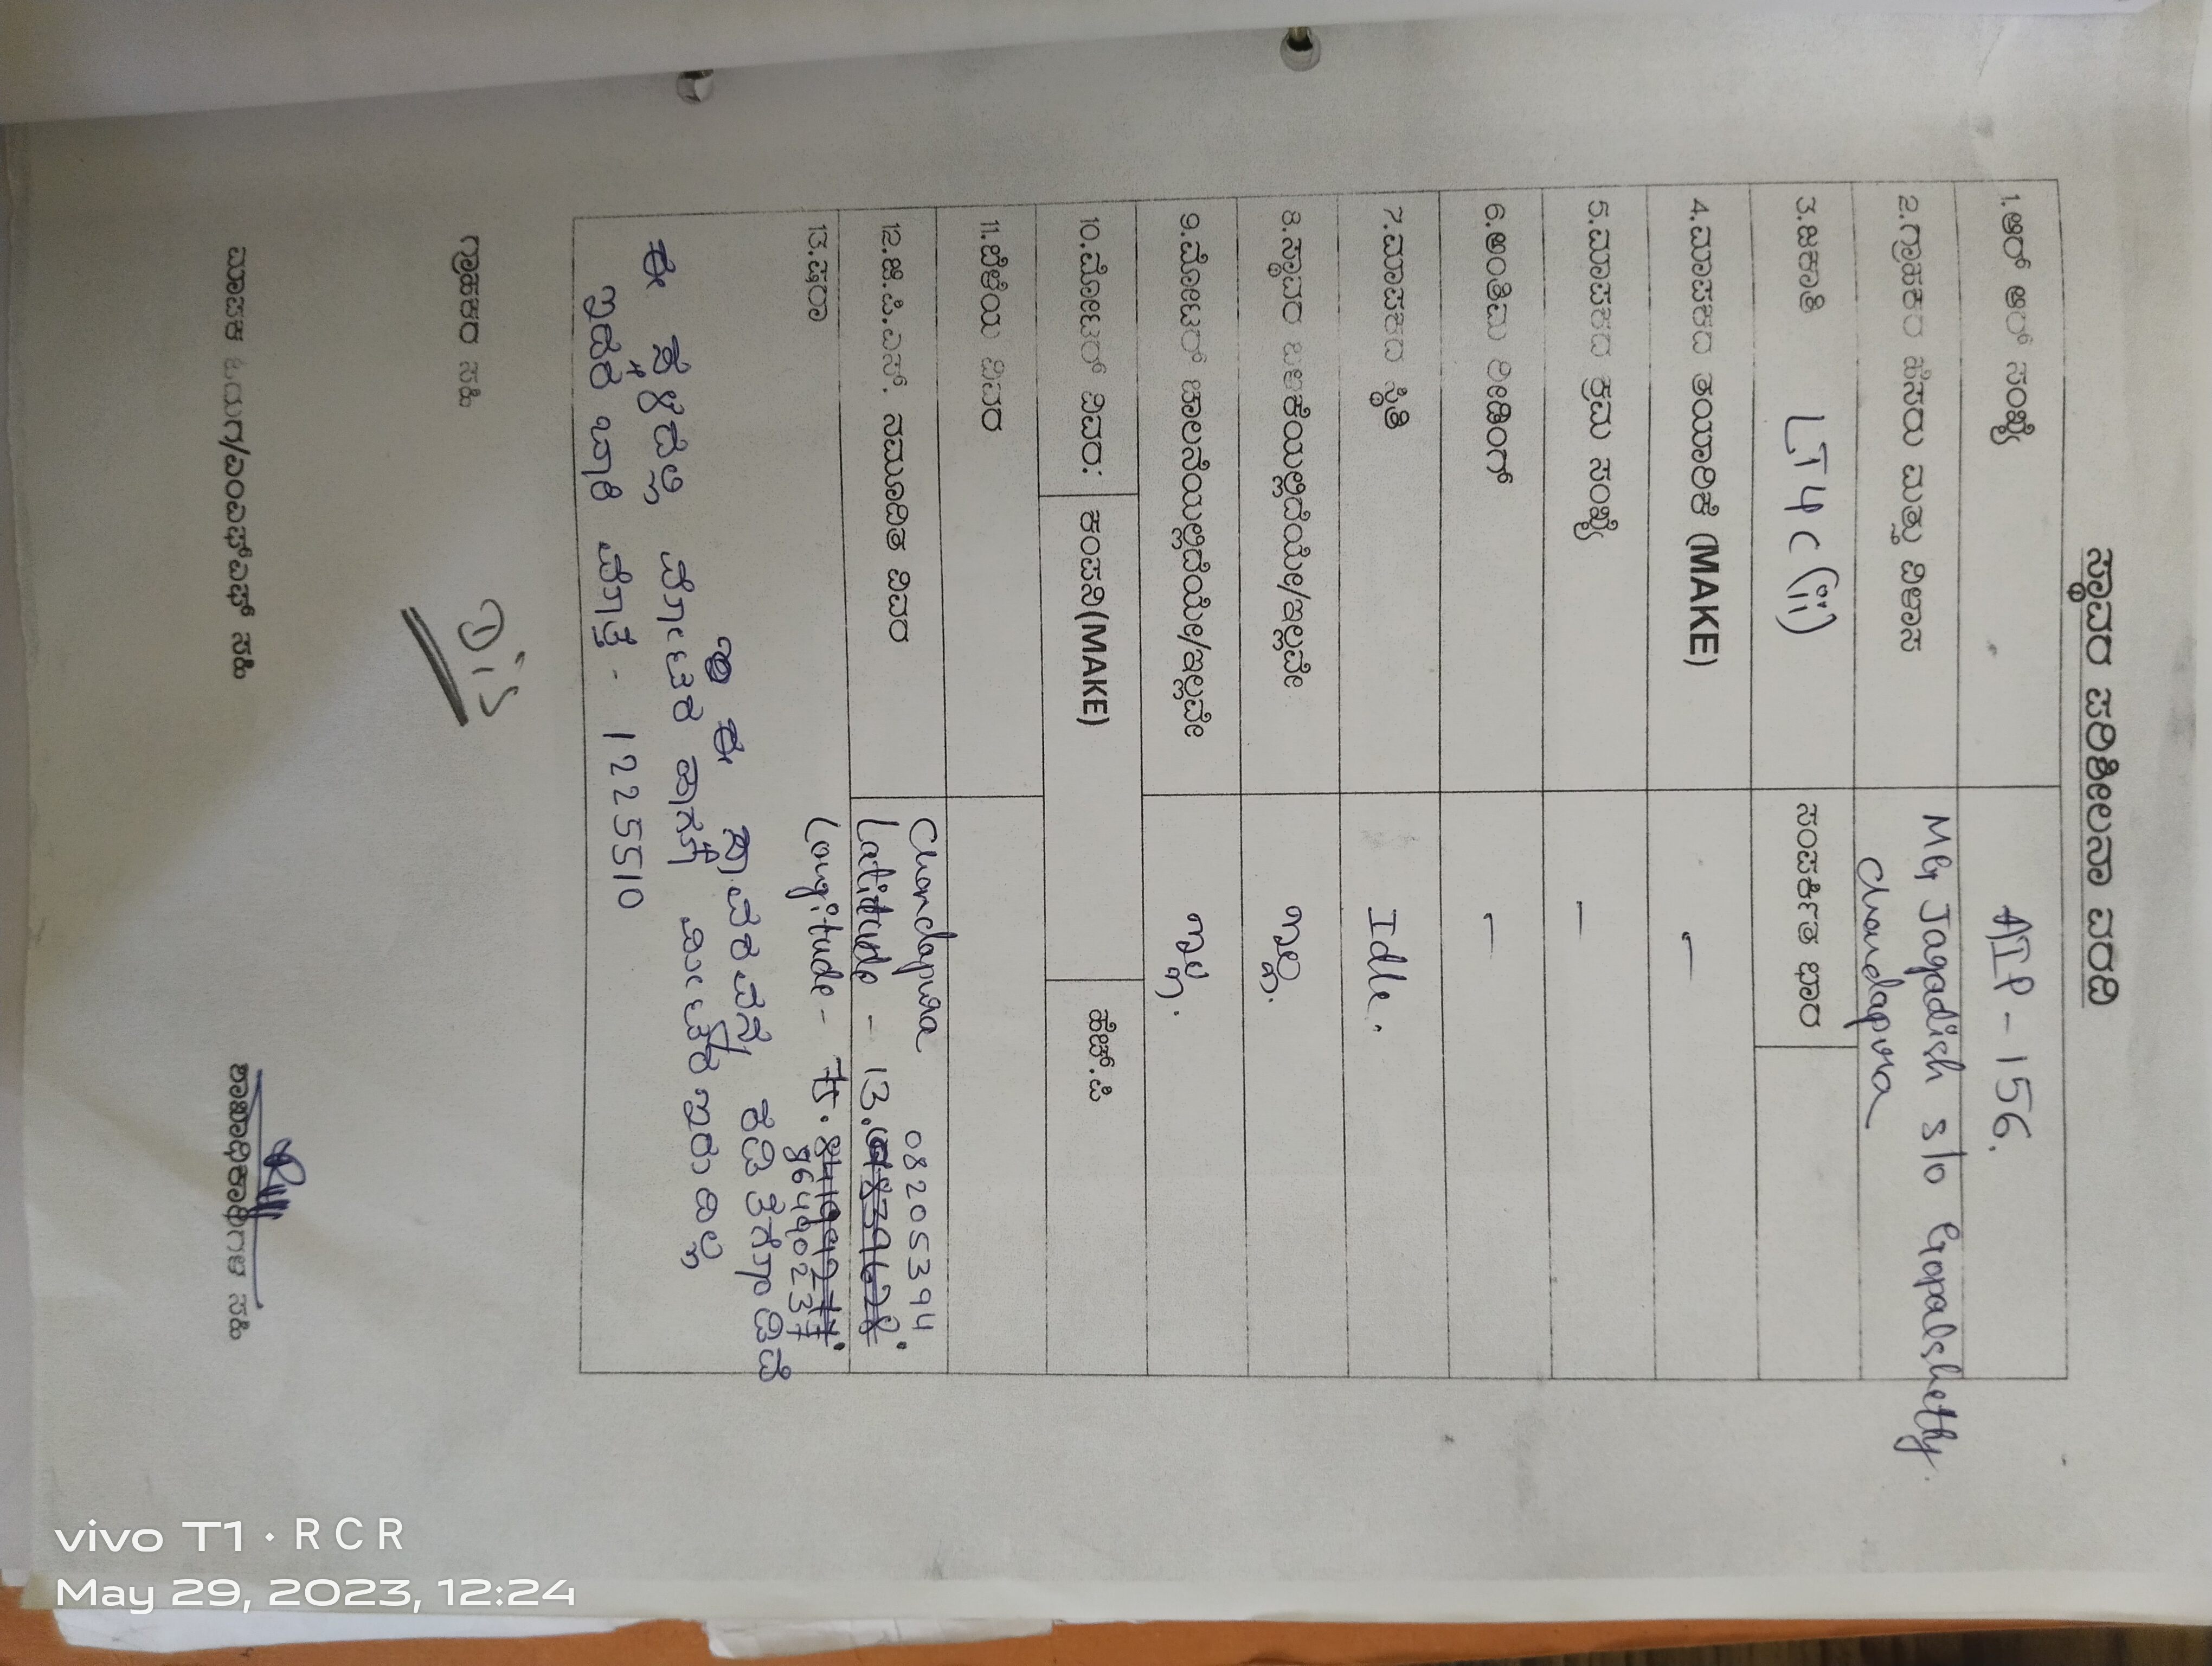 ಸ್ಥಾವರ ಪರಿಶೀಲನಾ ವರದಿ
1.ಆರ್ ಆರ್ ಸಂಖ್ಯೆ AIP - 156.
2.ಗ್ರಾಹಕರ ಹೆಸರು ಮತ್ತು ವಿಳಾಸ Mr Jagadish s/o Gopalshetty.
Chandapura
3.ಜಕಾತಿ LT4C(ii) ಸಂಪರ್ಕಿತ ಭಾರ
4.ಮಾಪಕದ ತಯಾರಿಕೆ (MAKE) -
5.ಮಾಪಕದ ಕ್ರಮ ಸಂಖ್ಯೆ -
6.ಅಂತಿಮ ರೀಡಿಂಗ್ -
7.ಮಾಪಕದ ಸ್ಥಿತಿ Idle.
8.ಸ್ಥಾವರ ಬಳಕೆಯಲ್ಲಿದೆಯೇ/ಇಲ್ಲವೇ ಇಲ್ಲ.
9.ಮೋಟರ್ ಚಾಲನೆಯಲ್ಲಿದೆಯೇ/ಇಲ್ಲವೇ ಇಲ್ಲ.
10.ಮೋಟರ್ ವಿವರ: ಕಂಪನಿ(MAKE) ಹೆಚ್.ಪಿ
11.ಬೆಳೆಯ ವಿವರ
12.ಜಿ.ಪಿ.ಎಸ್. ನಮೂದಿತ ವಿವರ Chandapura 08205394
Latitude - 13.
13.ಷರಾ Longitude - 75.
86490237
ಈ ಸ್ಥಾವರವನ್ನು ಕಡಿತಗೊಳಿಸಿದೆ
ಈ ಸ್ಥಳದಲ್ಲಿ ಮೋಟರ ಹಾಗೂ ಮೀಟರ ಇರುವುದಿಲ್ಲ
ಇದರ ಬಾಕಿ ಮೊತ್ತ - 1225510
ಗ್ರಾಹಕರ ಸಹಿ
Dis
ಮಾಪಕ ಓದುಗ/ಎಂಎಫ್‌ಎಫ್ ಸಹಿ ಶಾಖಾಧಿಕಾರಿಗಳ ಸಹಿ
vivo T1 · RCR
May 29, 2023, 12:24